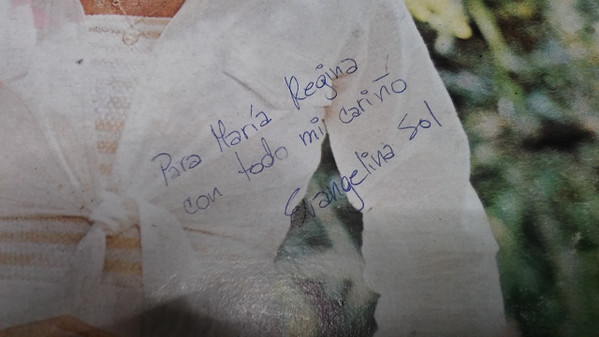 Para María Regina
con todo mi cariño
Evangelina Sol